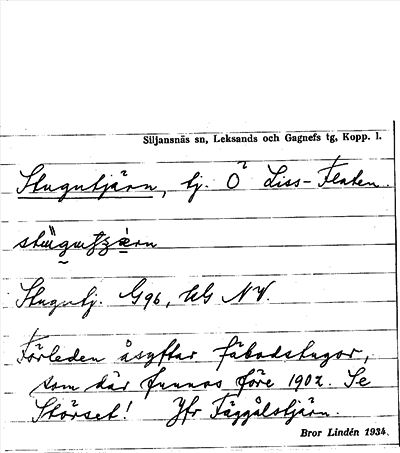 Siljansnäs sn, Leksands och Gagnefs tg, Kopp. l.
Stugutjärn, tj. Ö Liss-Flaten.
Stugutj. G96, UG NV.
Förleden åsyftar fäbodstugor,
som där funnos före 1902. Se
Störset! Jfr Fäggålstjärn.
Bror Lindén 1934